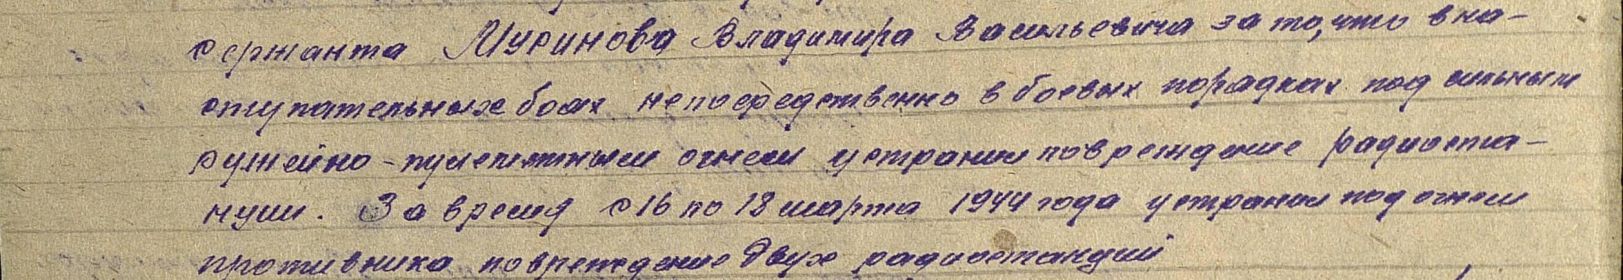 сержанта Муринова Владимира Васильевича за то, что в на-
ступательных боях непосредственно в боевых порядках под сильным
ружейно-пулеметным огнем устранил повреждение радиоста-
нции. За время с 16 по 18 марта 1944 года устранил под огнем
противника повреждение двух радиостанций